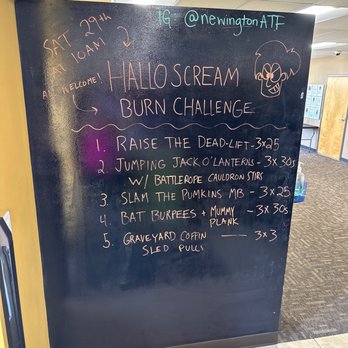 IG @newingtonATF
SAT 29th
AT 10AM
ALL WELCOME!
HALLOSCREAM
BURN CHALLENGE
1. RAISE THE DEAD-LIFT - 3x25
2. JUMPING JACK O'LANTERNS - 3x30s
W/ BATTLEROPE CAULDRON STIRS
3. SLAM THE PUMKINS MB - 3x25
4. BAT BURPEES + MUMMY PLANK - 3x30s
5. GRAVEYARD COFFIN SLED PULL! — 3x3